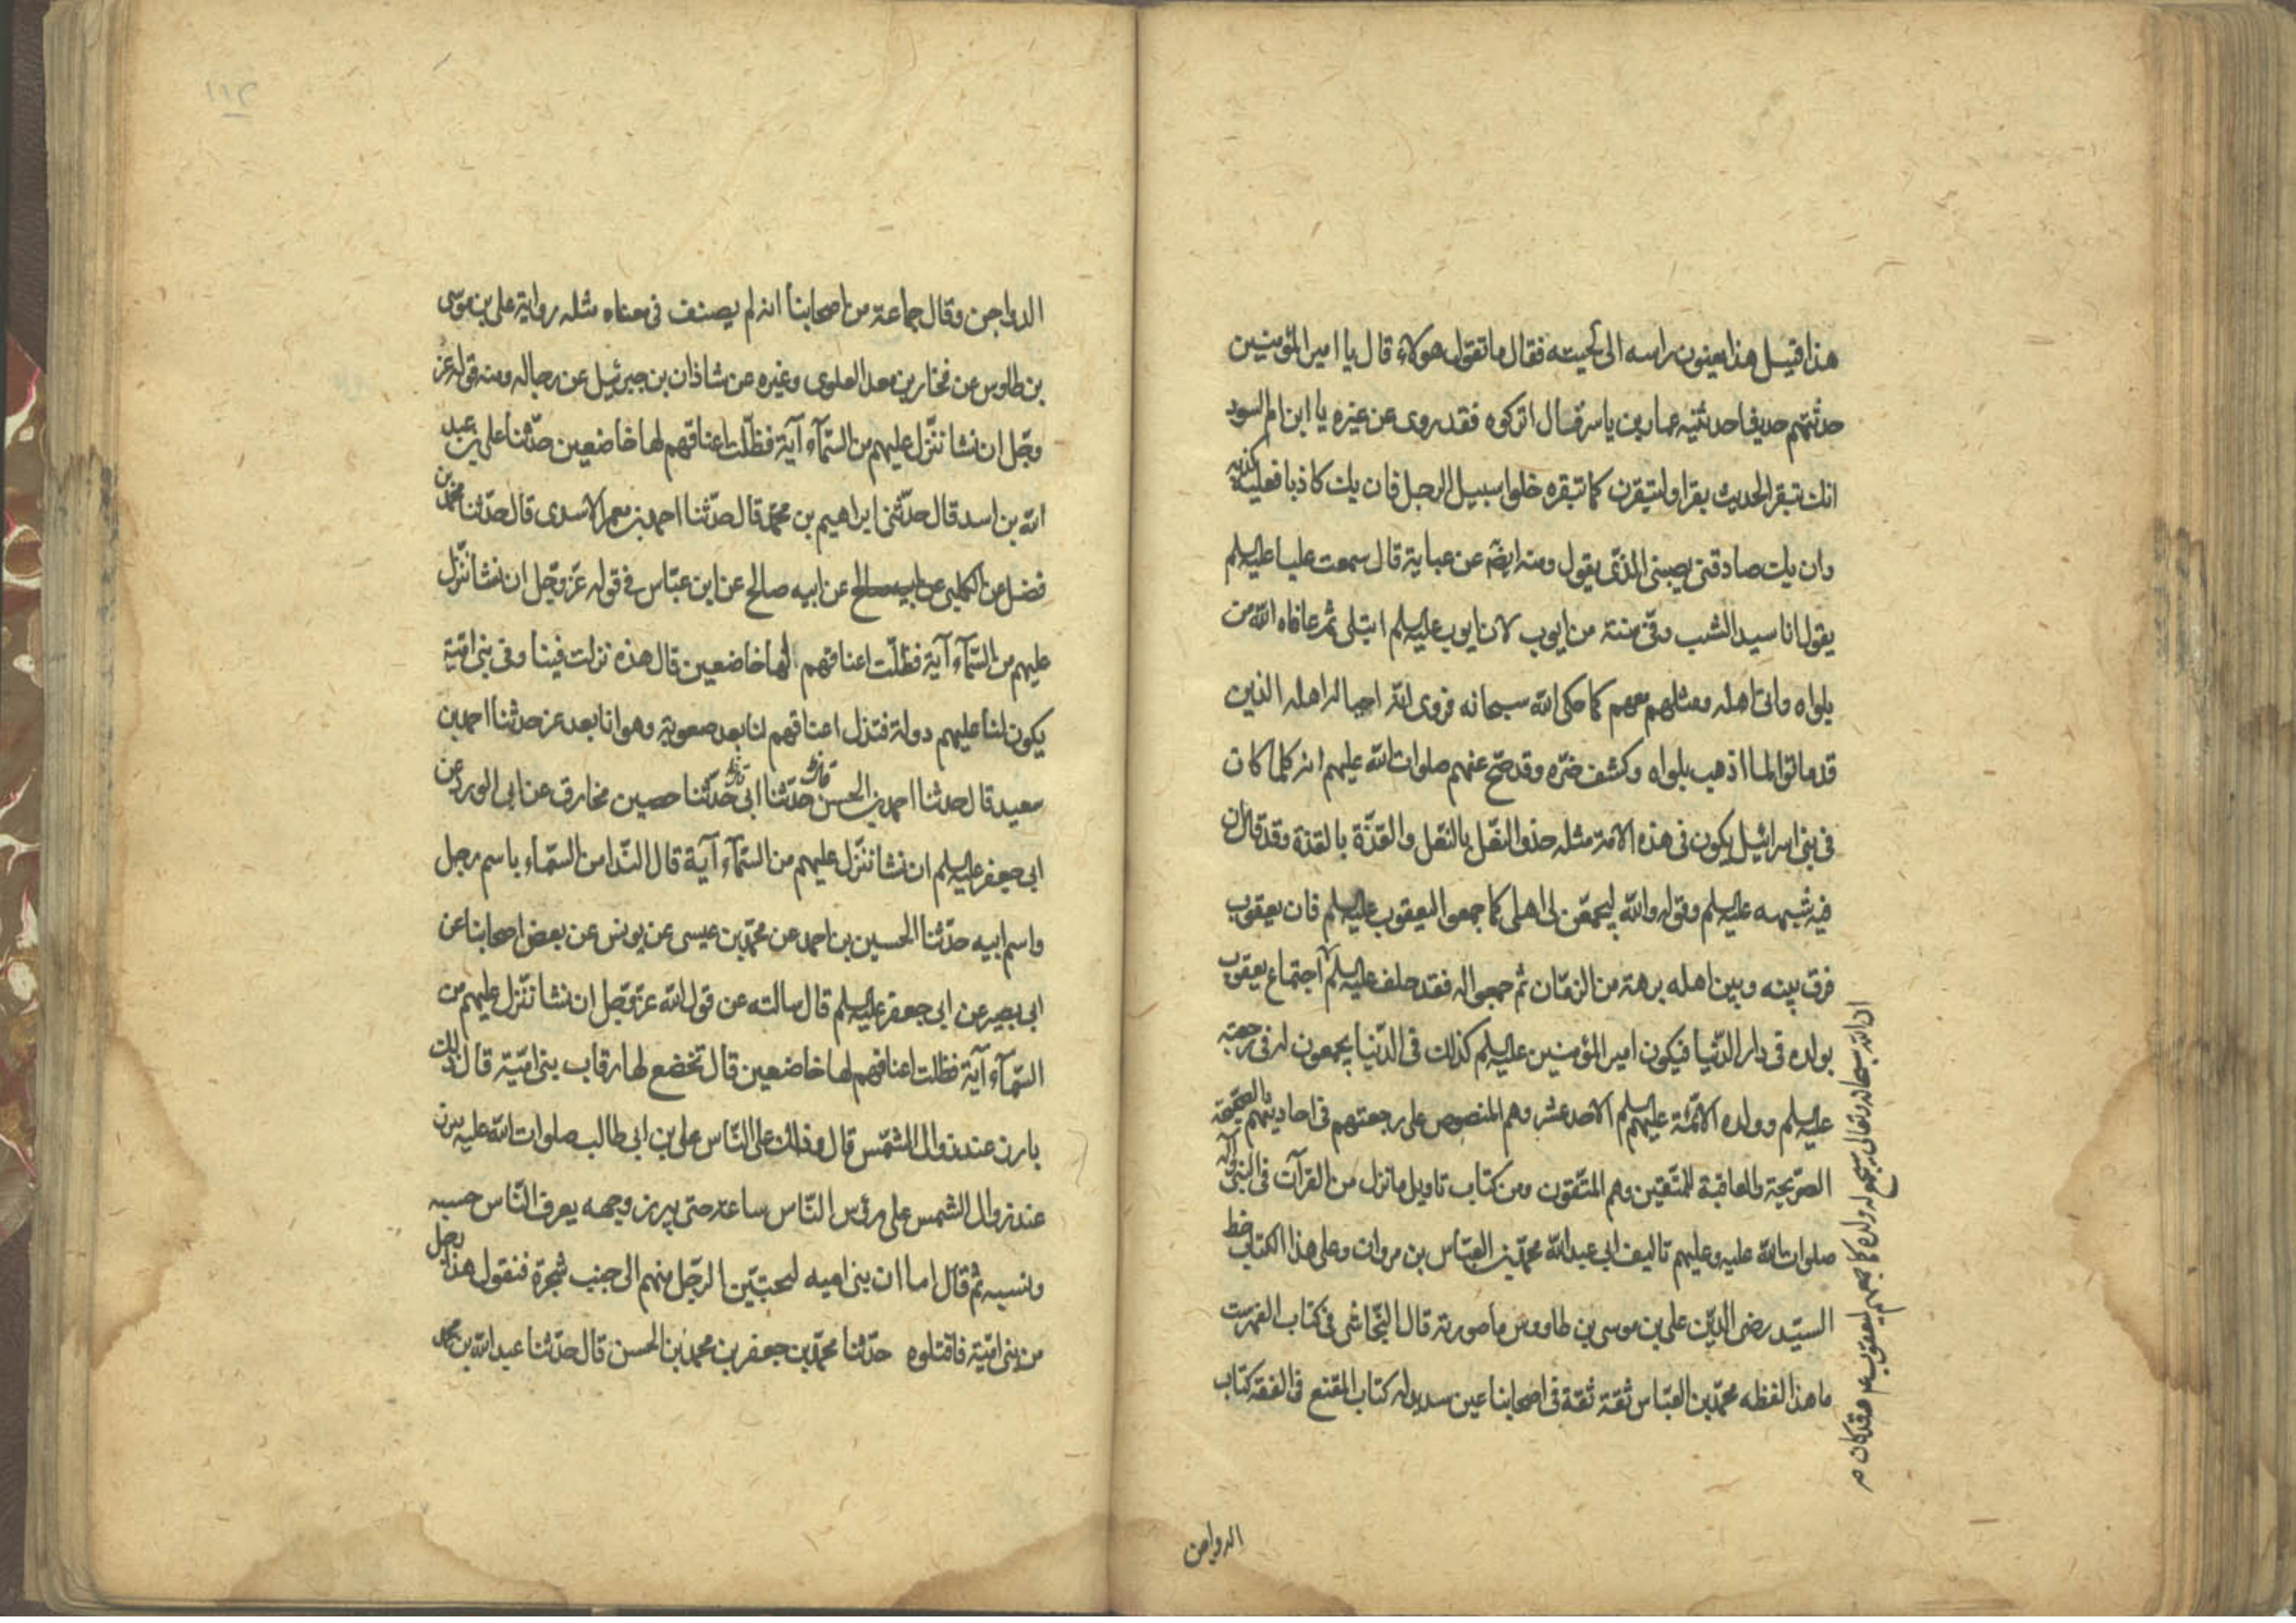 هذا قيل هذا يعنون راسه الى لحيته فقال ما تقول هولاء قال يا امير المؤمنين
حدثتهم حديثا حدثنيه عمار بن ياسر قال اتركوه فقد روى عن غيره يا ابن ام السود
انك تبقر الحديث بقرا ولتبقرن كما تبقره خلوا سبيل الرجل فان يك كاذبا فعليه كذبه
وان يك صادقتى يصبنى الذى يقول ومنه ايضا عن عباية قال سمعت عليا عليه السلم
يقول انا سيد الشب وفى سنة من ايوب لان ايوب عليه السلم ابتلى ثم عافاه الله من
بلواه واتى اهله ومثلهم معهم كما حكى الله سبحانه فروى انه احيا له اهله الذين
قد ماتوا لما اذهب بلواه وكشف ضره وقد صح عنهم صلوات الله عليهم انه كلما كان
فى بنى اسرائيل يكون فى هذه الامة مثله حذو النعل بالنعل والقذة بالقذة وقد قال ان
فيه شبهه عليه السلم وقوله والله ليجمعن لى اهلى كما جمعوا ليعقوب عليه السلم فان يعقوب
فرق بينه وبين اهله برهة من الزمان ثم جمعوا له فقد حلف عليه السلم اجتماع يعقوب
بولده فى دار الدنيا فيكون امير المؤمنين عليه السلم كذلك فى الدنيا يجمعون له فى رجعته
عليه السلم وولده الائمة عليهم السلم الاحد عشر وهم المنصوص على رجعتهم فى احاديثهم الصحيحة
الصريحة والعاقبة للمتقين وهم المتقون ومن كتاب تاويل ما نزل من القرآن فى النبى وآله
صلوات الله عليه وعليهم تاليف ابى عبد الله محمد بن العباس بن مروان وعلى هذا الكتاب خط
السيد رضى الدين على بن موسى بن طاووس ما صورته قال النجاشى فى كتاب الفهرست
ما هذا لفظه محمد بن العباس ثقة ثقة فى اصحابنا عين سديد له كتاب المقنع فى الفقه كتاب
ان الله سبحانه وتعالى سيجمع له ولده كما جمعهم ليعقوب عم فقد كان
الدواجن
الدواجن وقال جماعة من اصحابنا انه لم يصنف فى معناه مثله رواية على بن موسى
بن طاوس عن فخار بن معد العلوى وغيره عن شاذان بن جبرئيل عن رجاله ومنه قوله عز
وجل ان نشا ننزل عليهم من السمآء آية فظلت اعناقهم لها خاضعين حدثنا على بن عبد
الله بن اسد قال حدثنى ابراهيم بن محمد قال حدثنا احمد بن معمر الاسدى قال حدثنا محمد بن
فضل عن الكلبى عن ابيه صالح عن ابيه صالح عن ابن عباس فى قوله عز وجل ان نشا ننزل
عليهم من السمآء آية فظلت اعناقهم لها خاضعين قال هذه نزلت فينا وفى بنى امية
يكون لنا عليهم دولة فتذل اعناقهم لنا بعد صعوبة وهوانا بعد عز حدثنا احمد بن
سعيد قال حدثنا احمد بن الحسن قال حدثنا ابى قال حدثنا حصين مخارق عن ابى الورد عن
ابى جعفر عليه السلم ان نشا ننزل عليهم من السمآء آية قال الندا من السماء باسم رجل
واسم ابيه حدثنا الحسين بن احمد عن محمد بن عيسى عن يونس عن بعض اصحابنا عن
ابى بصير عن ابى جعفر عليه السلم قال سالته عن قول الله عز وجل ان نشا ننزل عليهم من
السمآء آية فظلت اعناقهم لها خاضعين قال تخضع لها رقاب بنى امية قال ذلك
بارز عند زوال الشمس قال وذلك على الناس على بن ابى طالب صلوات الله عليه يبرز
عند زوال الشمس على رؤس الناس ساعة حتى يبرز وجهه يعرف الناس حسبه
ونسبه ثم قال اما ان بنى اميه ليختبين الرجل منهم الى جنب شجرة فتقول هذا رجل
من بنى امية فاقتلوه حدثنا محمد بن جعفر بن محمد بن الحسن قال حدثنا عبد الله بن محمد